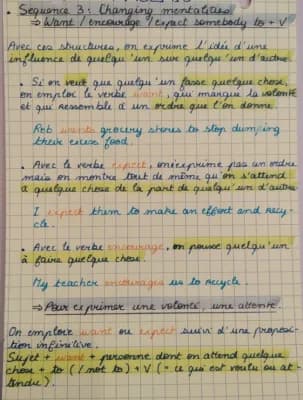 • Sequence 3: Changing mentalities
⇒ Want / encourage / expect somebody to + V
Avec ces structures, on exprime l'idée d'une
influence de quelqu'un sur quelqu'un d'autre.
• Si on veut que quelqu'un fasse quelque chose,
on emploi le verbe want, qui marque la volonté
et qui ressemble à un ordre que l'on donne.
Rob wants grocery stores to stop dumping
their excess food.
• Avec le verbe expect, on n'exprime pas un ordre
mais on montre tout de même qu'on s'attend
à quelque chose de la part de quelqu'un d'autre
I expect them to make an effort and recy-
cle.
• Avec le verbe encourage, on pousse quelqu'un
à faire quelque chose.
My teacher encourages us to recycle.
⇒ Pour exprimer une volonté, une attente.
On emploie want ou expect suivi d'une proposi-
tion infinitive.
Sujet + want + personne dont on attend quelque
chose + to (/ not to) + V (= ce qui est voulu ou at-
tendu).